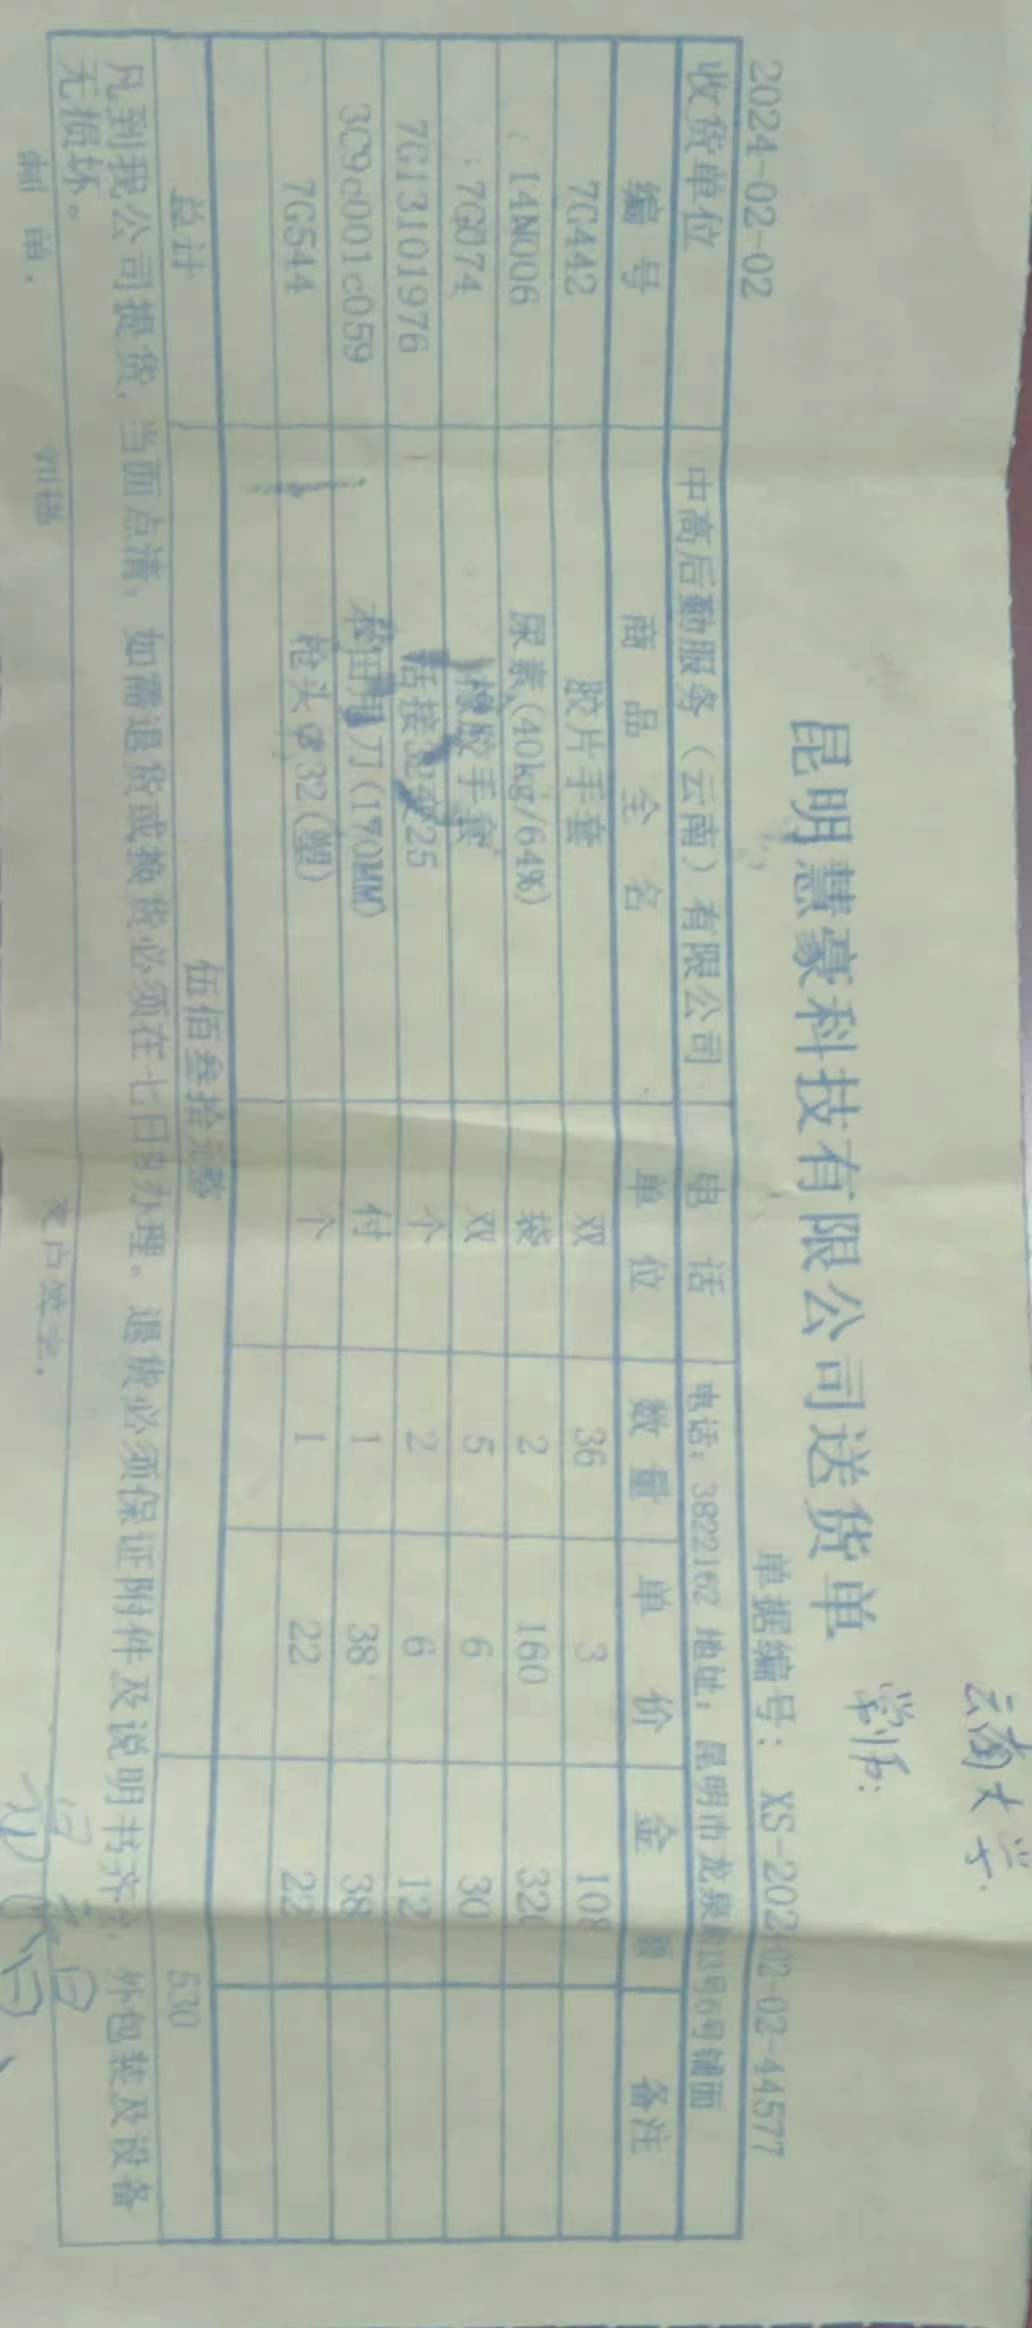 云南大学
常师:
昆明慧豪科技有限公司送货单
2024-02-02 单据编号: XS-2024-02-02-44577
收货单位 中高后勤服务（云南）有限公司 电话 电话：3822162 地址：昆明市龙泉 13号6号铺面
编号 商品全名 单位 数量 单价 金额 备注
7G442 胶片手套 双 36 3 108
14N006 尿素(40kg/64%) 袋 2 160 320
7G074 橡胶手套 双 5 6 30
7G13101976 活接32变25 个 2 6 12
3C9c001c059 本田用刀(170MM) 付 1 38 38
7G544 枪头 32(塑) 个 1 22 22
总计 伍佰叁拾元整 530
凡到我公司提货，当面点清，如需退货或换货必须在七日内办理。退货必须保证附件及说明书齐全，外包装及设备
无损坏。
制单： 客户签字：